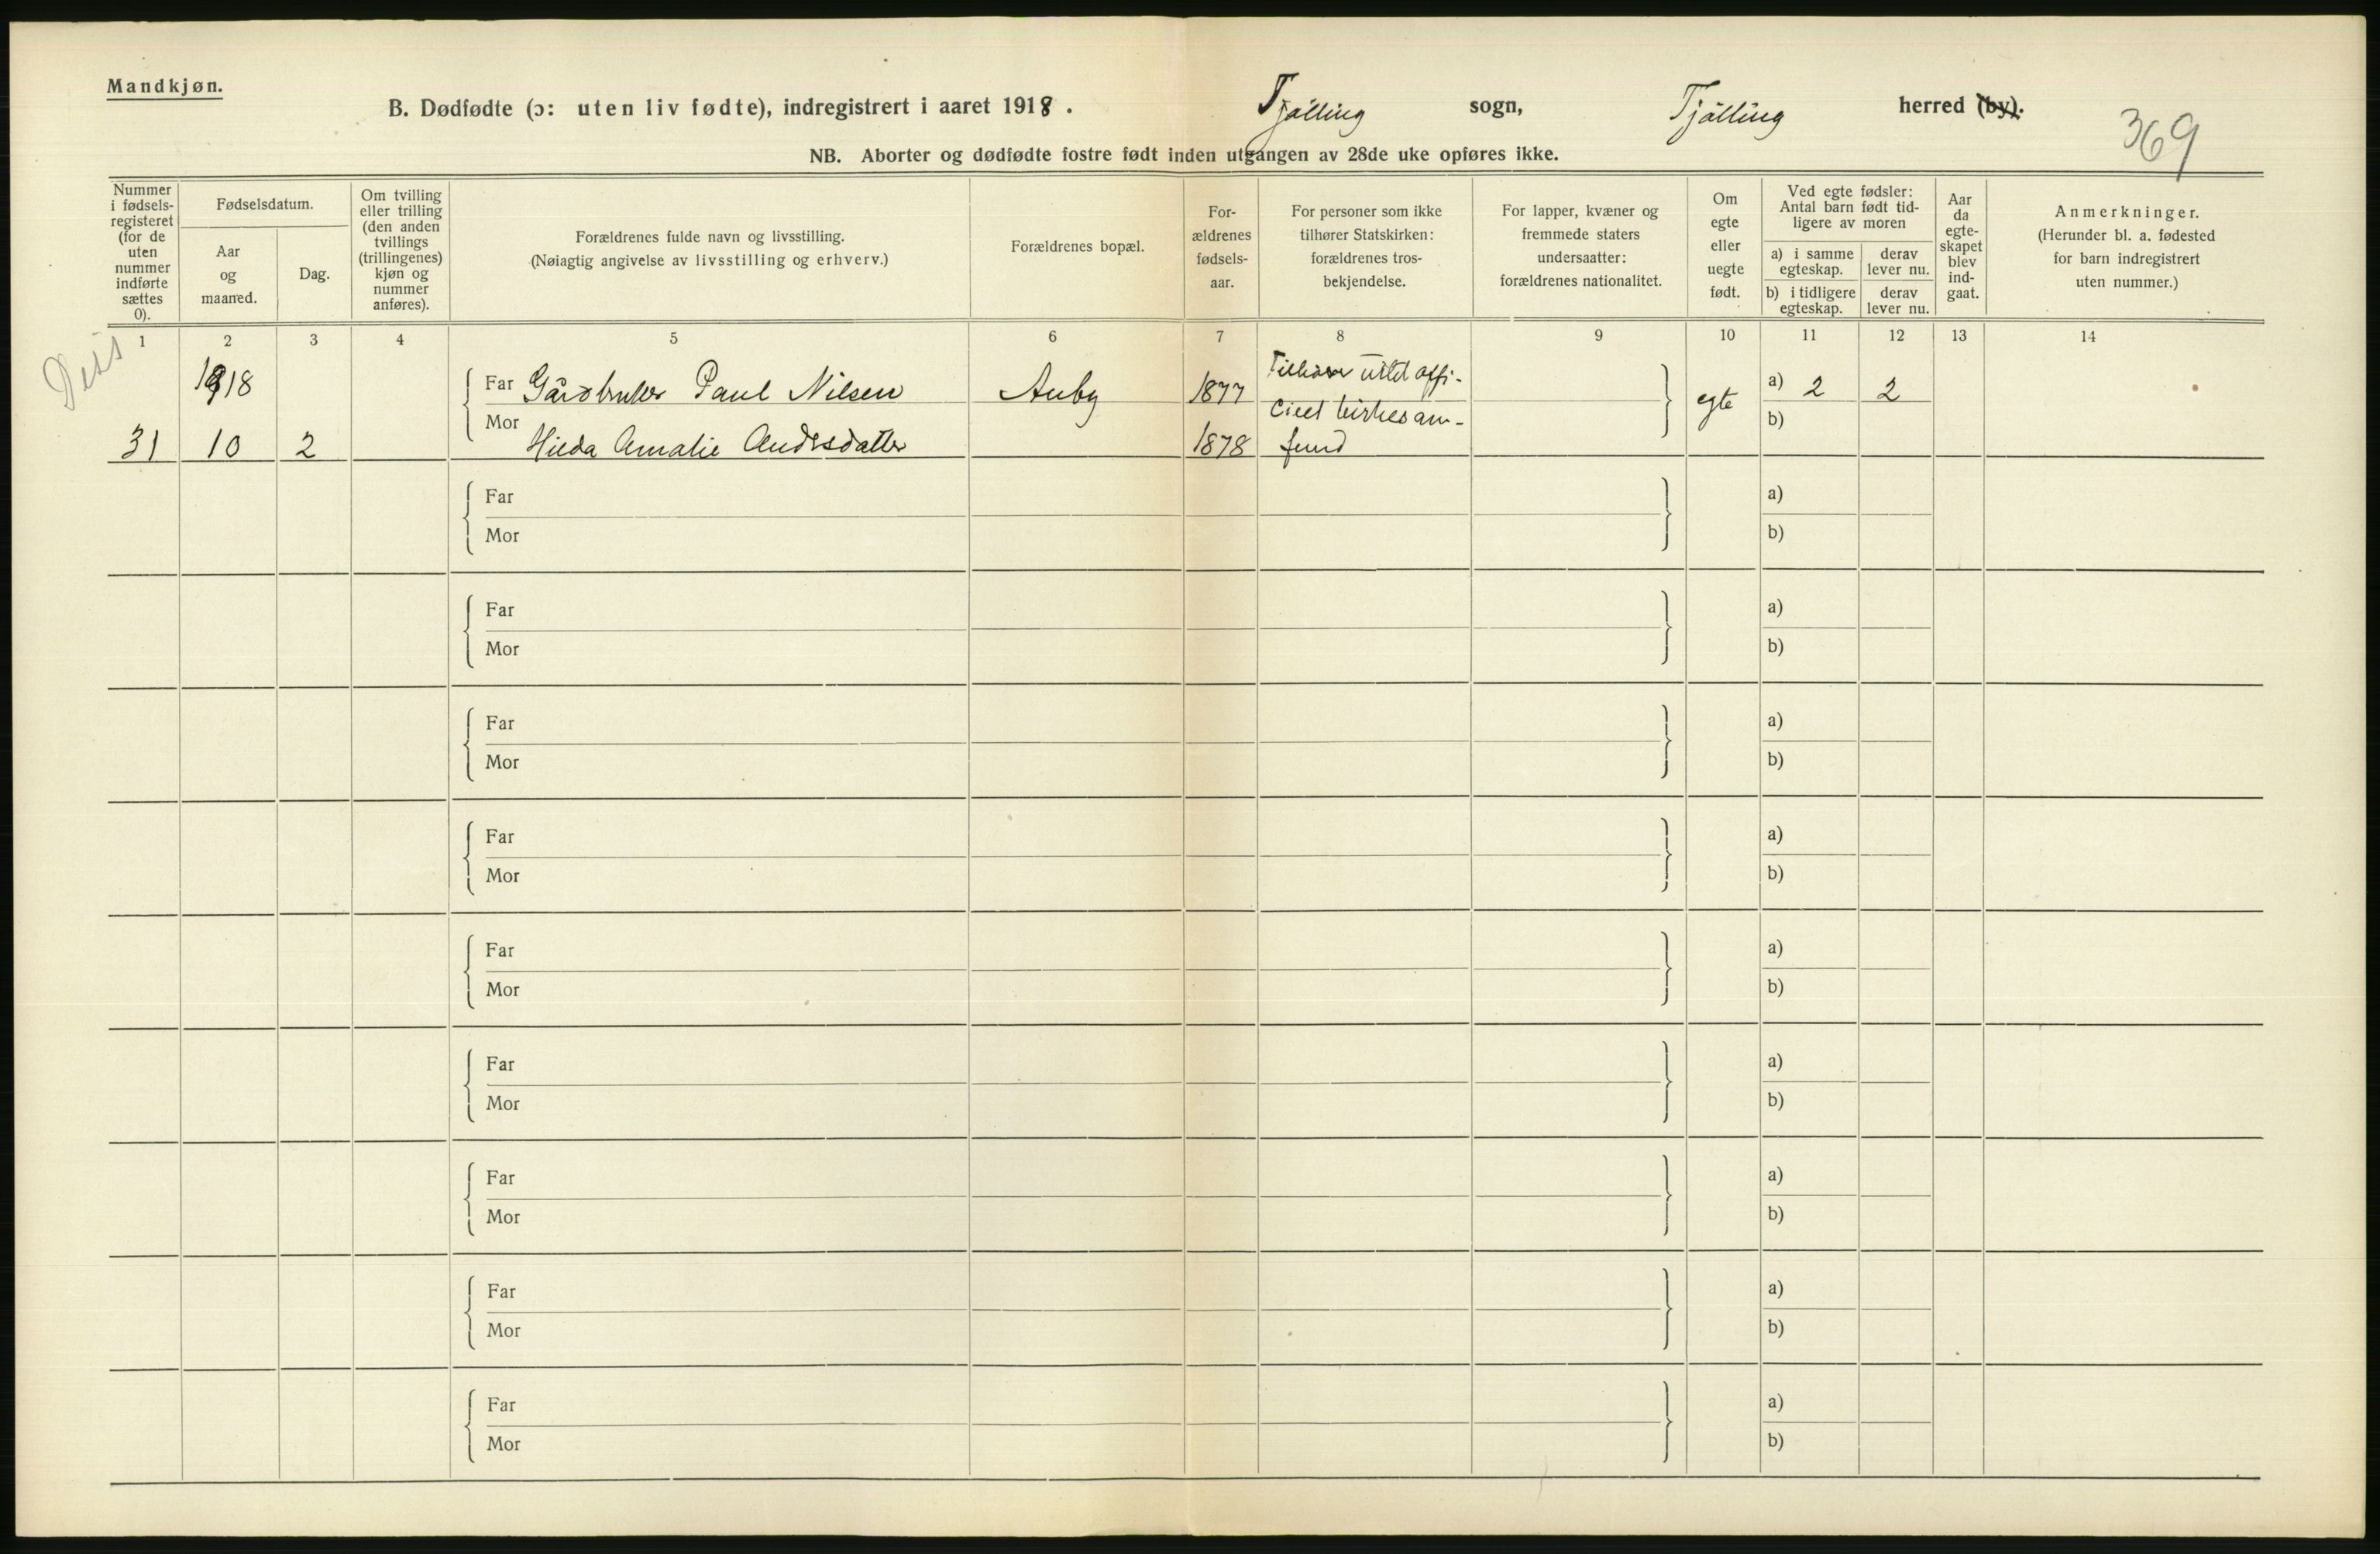 Mandkjøn.
B. Dødfødte (ɔ: uten liv fødte), indregistrert i aaret 1918.
Tjølling sogn, Tjølling herred (by).
369
NB. Aborter og dødfødte fostre født inden utgangen av 28de uke opføres ikke.
Nummer i fødselsregisteret (for de uten nummer indførte sættes 0).
Fødselsdatum.
Aar og maaned.
Dag.
Om tvilling eller trilling (den anden tvillings (trillingenes) kjøn og nummer anføres).
Forældrenes fulde navn og livsstilling.
(Nøiagtig angivelse av livsstilling og erhverv.)
Forældrenes bopæl.
Forældrenes fødselsaar.
For personer som ikke tilhører Statskirken: forældrenes trosbekjendelse.
For lapper, kvæner og fremmede staters undersaatter: forældrenes nationalitet.
Om egte eller uegte født.
Ved egte fødsler: Antal barn født tidligere av moren
a) i samme egteskap.
derav lever nu.
b) i tidligere egteskap.
derav lever nu.
Aar da egteskapet blev indgaat.
Anmerkninger.
(Herunder bl. a. fødested for barn indregistrert uten nummer.)
1 2 3 4 5 6 7 8 9 10 11 12 13 14
1918
Far Gårdbruker Paul Nilsen Auby 1877 Tilhører intet offi-
cielt kirkesam-
fund
egte a) 2 2
Mor b)
31 10 2 Hilda Amalie Andersdatter 1878
Far a)
Mor b)
Far a)
Mor b)
Far a)
Mor b)
Far a)
Mor b)
Far a)
Mor b)
Far a)
Mor b)
Far a)
Mor b)
Far a)
Mor b)
Far a)
Mor b)